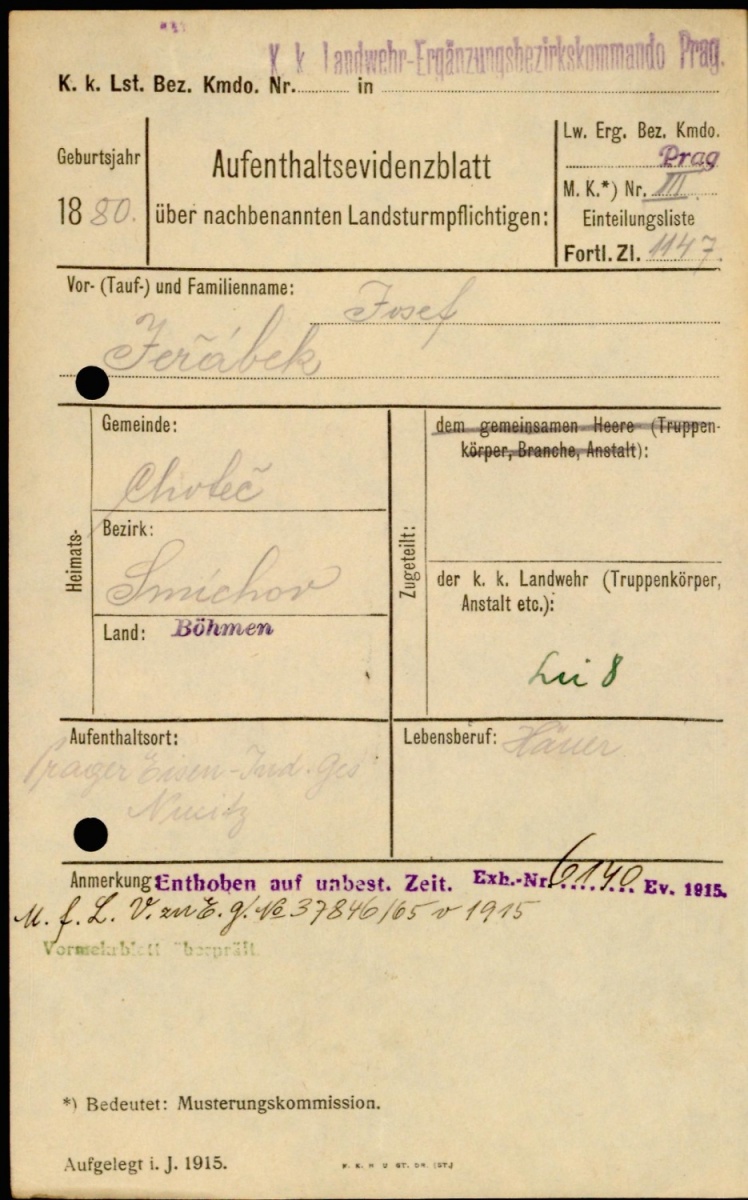 K. k. Landwehr-Ergänzungsbezirkskommando Prag.
K. k. Lst. Bez. Kmdo. Nr. in
Geburtsjahr
1880.
Aufenthaltsevidenzblatt
über nachbenannten Landsturmpflichtigen:
Lw. Erg. Bez. Kmdo.
Prag
M. K.*) Nr. III
Einteilungsliste
Fortl. Zl. 1147
Vor- (Tauf-) und Familienname:
Josef
Jeřábek
Heimats-
Gemeinde:
Choteč
Bezirk:
Smichov
Land: Böhmen
Zugeteilt:
dem gemeinsamen Heere (Truppen-
körper, Branche, Anstalt):
der k. k. Landwehr (Truppenkörper,
Anstalt etc.):
8
Aufenthaltsort:
Prager Eisen-Ind. Ges
Nučitz
Lebensberuf: Häuer
Anmerkung: Enthoben auf unbest. Zeit. Exh.-Nr. 6140 Ev. 1915.
M. f. L. V. zu E. g. No 37846/65 v 1915
*) Bedeutet: Musterungskommission.
Aufgelegt i. J. 1915.